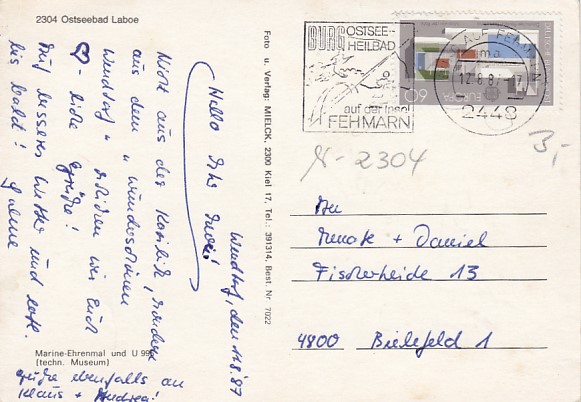 2304 Ostseebad Laboe
Wendtorf, den 11.8.87
Hallo Ihr
Nicht aus der Karibik, sondern
aus dem "wunderschönen
Wendtorf" schicken wir Euch
♡-liche Grüße!
Auf besseres Wetter und
bis bald!
Marine-Ehrenmal und U 995
(techn. Museum)
Grüße ebenfalls an
Klaus + Andrea!
Foto u. Verlag: MIELCK, 2300 Kiel 17, Tel.: 391314, Best. Nr. 7022
BURG OSTSEE-
HEILBAD
auf der Insel
FEHMARN
AUF FEHMARN
12.8.87-17
2448
60
3,-
2304
An
Renate + Daniel
Fischerheide 13
4800 Bielefeld 1